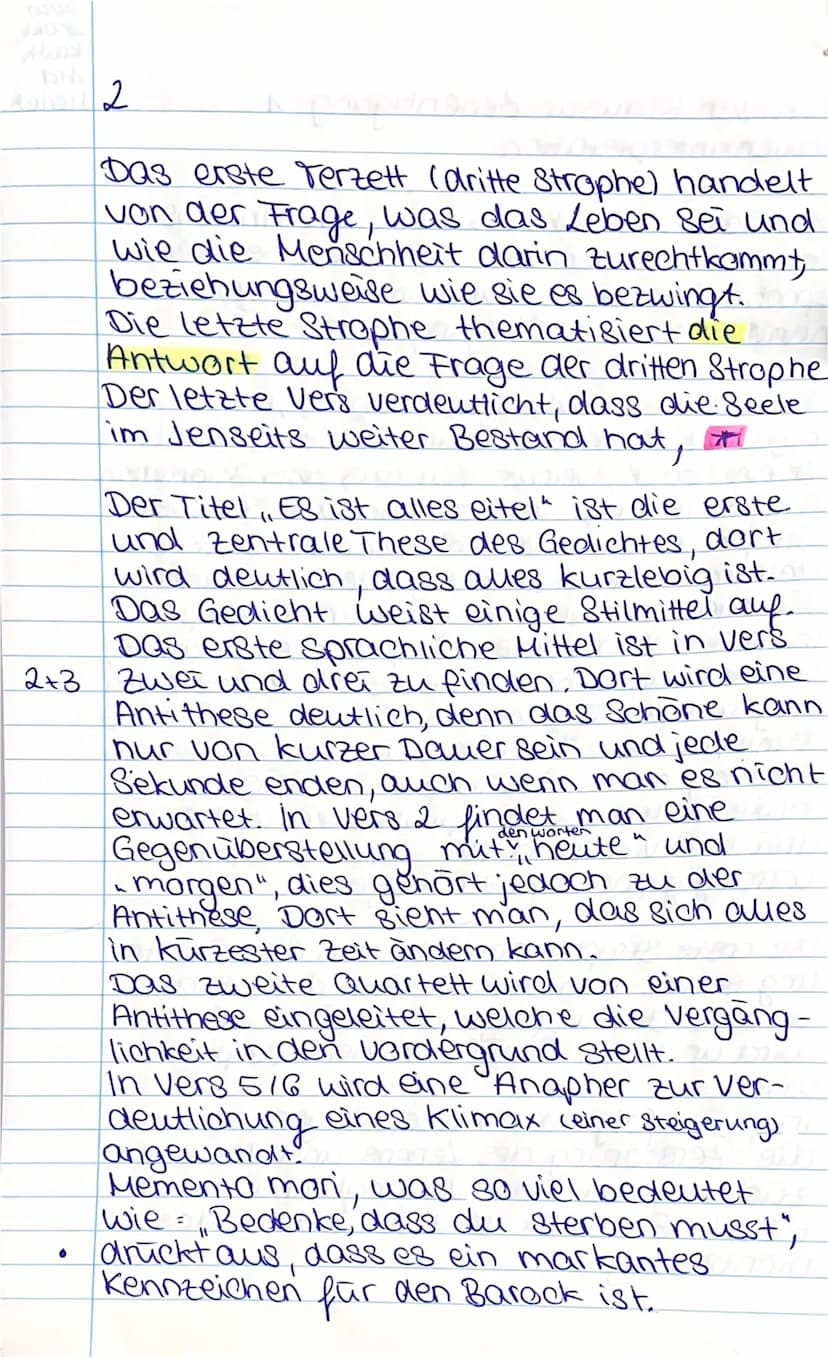 2
Das erste Terzett (dritte Strophe) handelt
von der Frage, was das Leben sei und
wie die Menschheit darin zurechtkommt,
beziehungsweise wie sie es bezwingt.
Die letzte Strophe thematisiert die
Antwort auf die Frage der dritten Strophe
Der letzte Vers verdeutlicht, dass die Seele
im Jenseits weiter Bestand hat, *
Der Titel „Es ist alles eitel“ ist die erste
und zentrale These des Gedichtes, dort
wird deutlich, dass alles kurzlebig ist.
Das Gedicht weist einige Stilmittel auf.
Das erste sprachliche Mittel ist in Vers
2+3 zwei und drei zu finden. Dort wird eine
Antithese deutlich, denn das Schöne kann
nur von kurzer Dauer sein und jede
Sekunde enden, auch wenn man es nicht
erwartet. In Vers 2 findet man eine
den Worten
Gegenüberstellung mit „heute“ und
„morgen“, dies gehört jedoch zu der
Antithese. Dort sieht man, das sich alles
in kürzester Zeit ändern kann.
Das zweite Quartett wird von einer
Antithese eingeleitet, welche die Vergäng-
lichkeit in den vordergrund stellt.
In Vers 5/6 wird eine Anapher zur Ver-
deutlichung eines Klimax (einer Steigerung)
angewandt.
Memento mori, was so viel bedeutet
wie: „Bedenke, dass du sterben musst“,
• drückt aus, dass es ein markantes
Kennzeichen für den Barock ist.